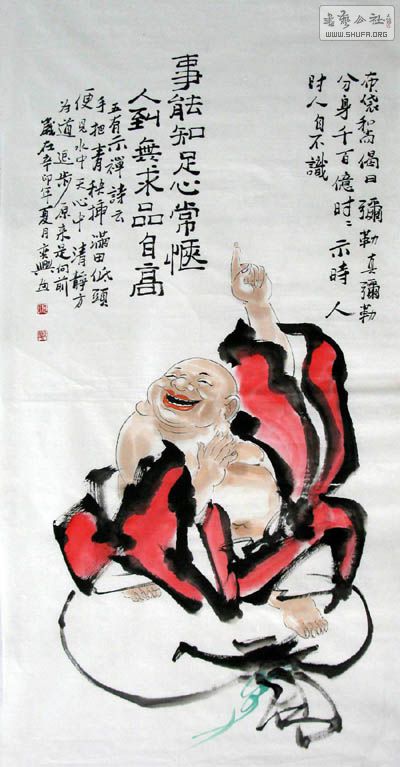 書藝公社
WWW.SHUFA.ORG
布袋和尚偈曰彌勒真彌勒
分身千百億时〻示時人
时人自不識
事能知足心常愜
人到無求品自高
又有示禪詩云
手把青秧插滿田低頭
便見水中天心中清靜方
为道退步原来是向前
歲在辛卯年夏月